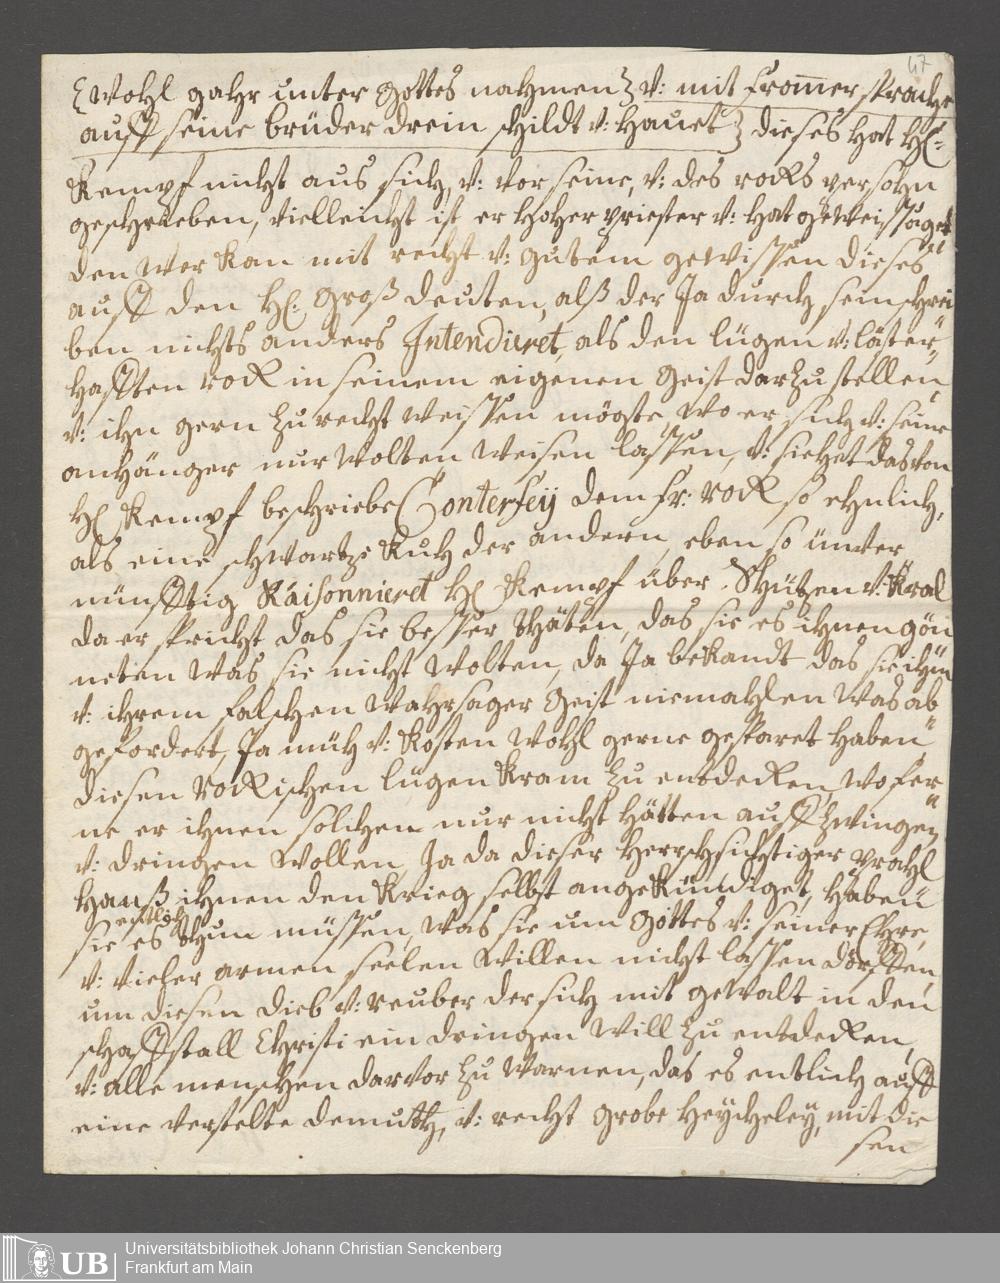 47
{wohl gahr unter Gottes nahmen} v: mit from̅er sprache
auff seine brüder drein schildt v: hauet} dieses hat H:
Kempf nicht aus sich, v: vor seine, v: des rocks persohn
geschrieben, vielleicht ist er hoher priester v: hat geweissaget
den wer kan mit recht v: gutem gewissen dieses
auff den H: Groß deuten, alß der Ja durch sein schrei
ben nichts anders Intendieret, als den lügen v: läster,,
hafften rock in seinem eigenen Geist darzustellen
v: ihn gern zu recht weissen mögte, wo er sich v: seine
anhänger nur wolten weisen lassen, v: siehet das von
H Kempf beschriebe Conterfeÿ dem Hr: rock so ehnlich,
als eine schwartze Kuh der andern, eben so ünver
nünfftig Raisonnieret H Kempf über Schützen v: Kral
da er spricht das sie besser thäten, das sie es ihnen gön
neten was sie nicht wolten, da Ja bekandt das sie ihm
v: ihrem falschen wahrsager Geist niemahlen was ab
gefordert, Ja müh v: kosten wohl gerne gesparet haben
diesen rockischen lügen kram zu entdecken, wo fer
ne er ihnen solchen nur nicht hätten auff zwingen
v: dringen wollen Ja da dieser herrschsichtiger prahl
hanß ihnen den krieg selbst angekündiget, haben
entlich
sie es thun müssen, was sie um Gottes v: seiner Ehre,
v: vieler armen seelen willen nicht lassen dörfften,
um diesen dieb v: reuber der sich mit gewalt in den
schaffstall Christi ein dringen will zu entdecken,
v: alle menschen darvor zu warnen, das es entlich auff
eine verstelte demuth, v: recht grobe heÿcheleÿ, mit die
sen
UB
Universitätsbibliothek Johann Christian Senckenberg
Frankfurt am Main